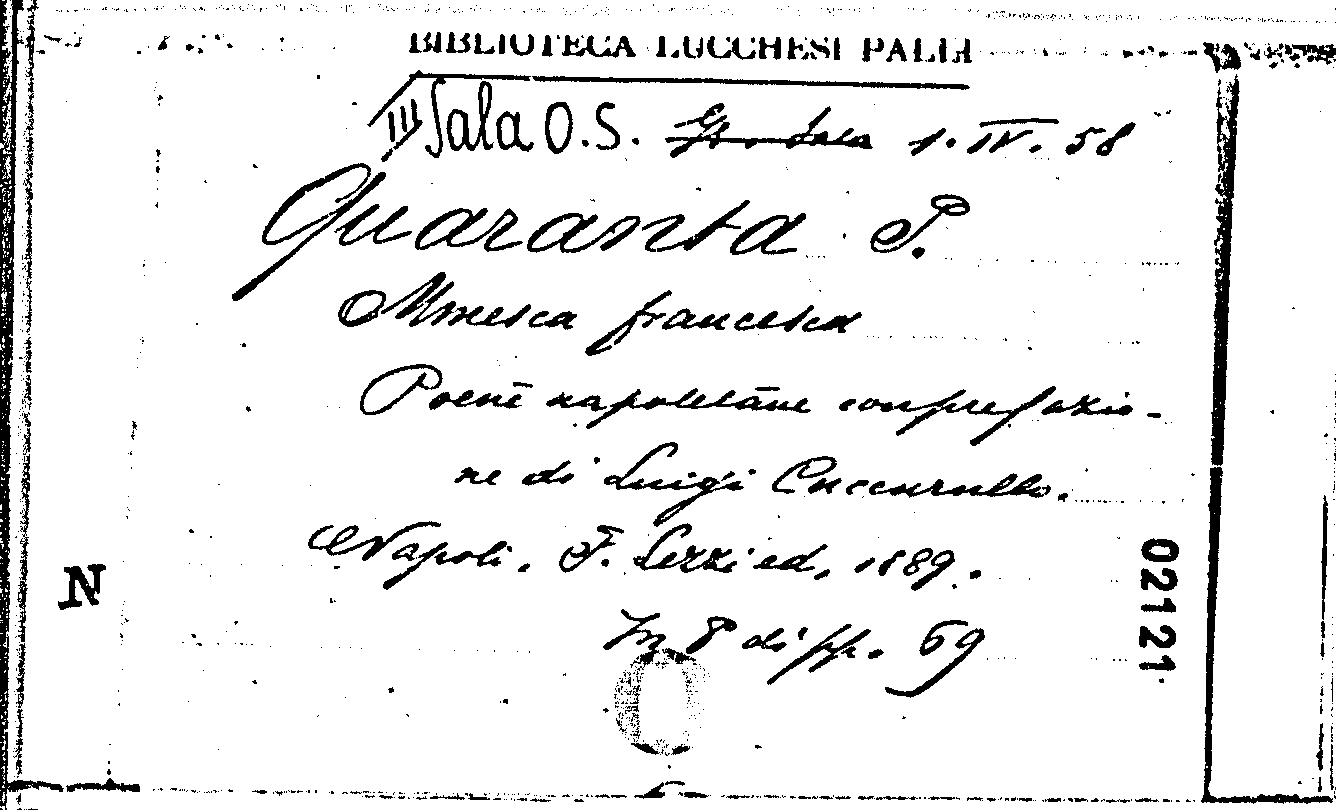 BIBLIOTECA LUCCHESI PALLI
III Sala O.S. Gr. Sala 1. IV. 58
Quaranta P.
Monesca francesca
Poesie napoletane con prefazio-
ne di Luigi Cuccurullo.
Napoli, F. Lezzi ed, 1889.
In 8° di pp. 59
N
02121